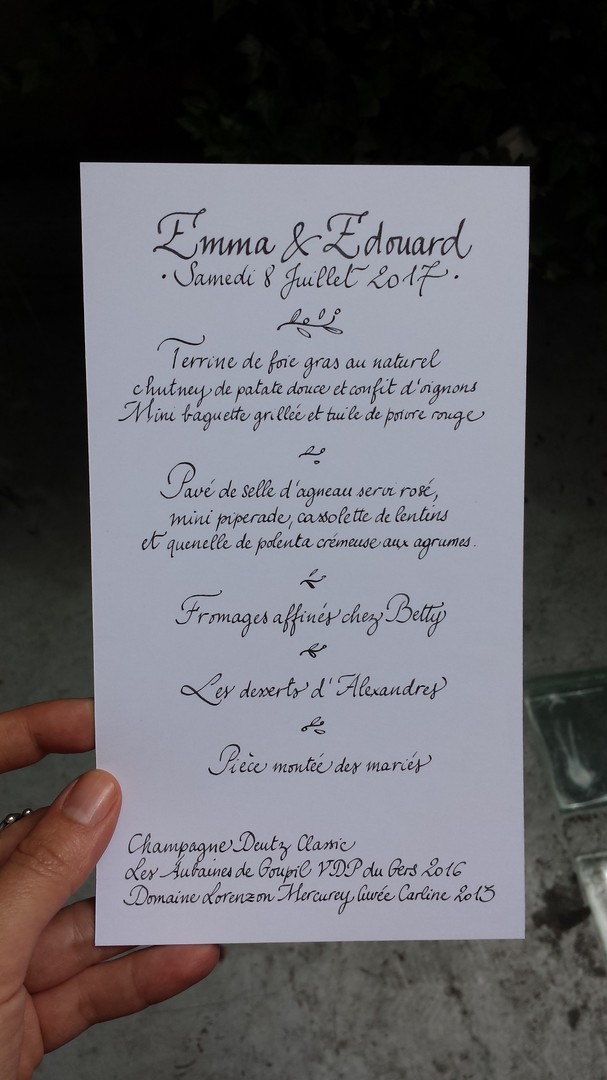 Emma & Edouard
· Samedi 8 Juillet 2017 ·
Terrine de foie gras au naturel
chutney de patate douce et confit d'oignons
Mini baguette grillée et tuile de poivre rouge
Pavé de selle d'agneau servi rosé,
mini piperade, cassolette de lentins
et quenelle de polenta crémeuse aux agrumes.
Fromages affinés chez Betty
Les desserts d'Alexandres
Pièce montée des mariés
Champagne Deutz Classic
Les Aubaines de Goupil VDP du Gers 2016
Domaine Lorenzon Mercurey Cuvée Carline 2013